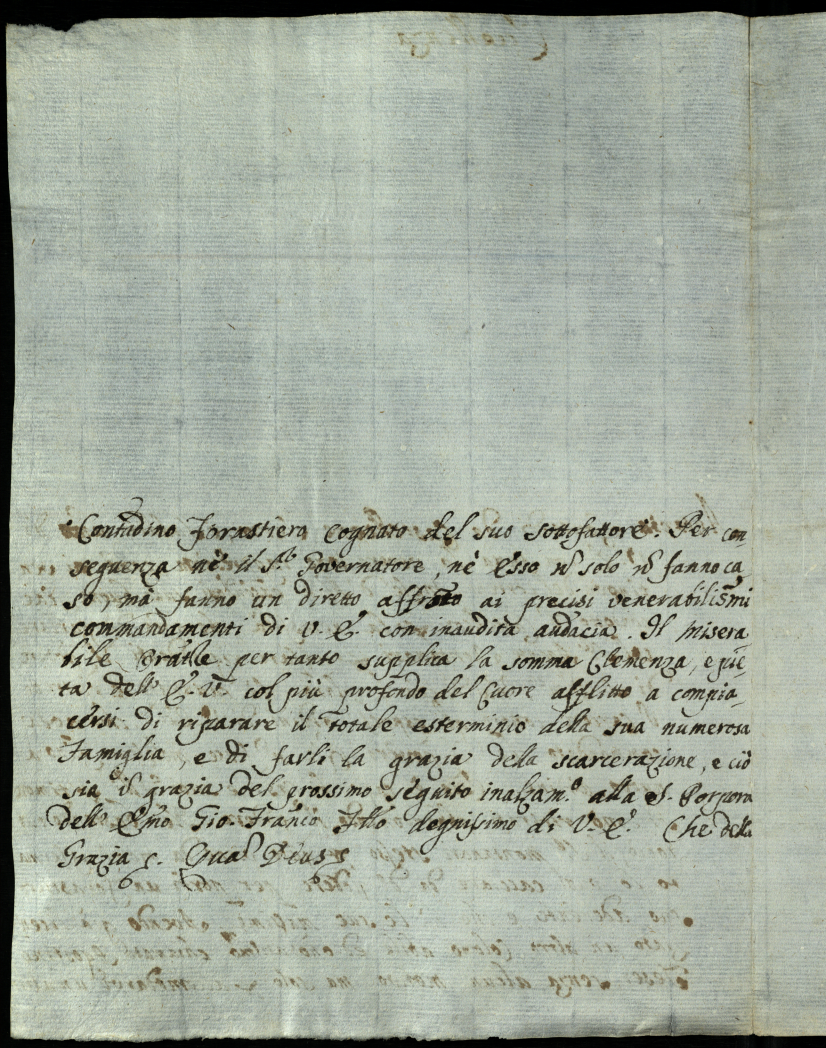 Contadino Forastiero Cognato del suo sottofattore. Per con-
seguenza nè il S.r Governatore, nè esso nõ solo nõ fanno ca
so, mà fanno un diretto affroto ai precisi venerabiliss̃mi
commandamenti di V. E. con inaudita audacia. Il misera
bile per tanto supplica la somma Clemenza, e pie-
tà dell' E. V. col più profondo del Cuore afflitto a compia-
cersi di riparare il totale esterminio della sua numerosa
Famiglia, e di farli la grazia della scarcerazione, e ciò
sia ĩ grazia del prossimo seguito inalzam.o alla S. Porpora
dell' Em̃o Gio. Franco degnissimo di V. E. Che della
Grazia &. Qua Deus &